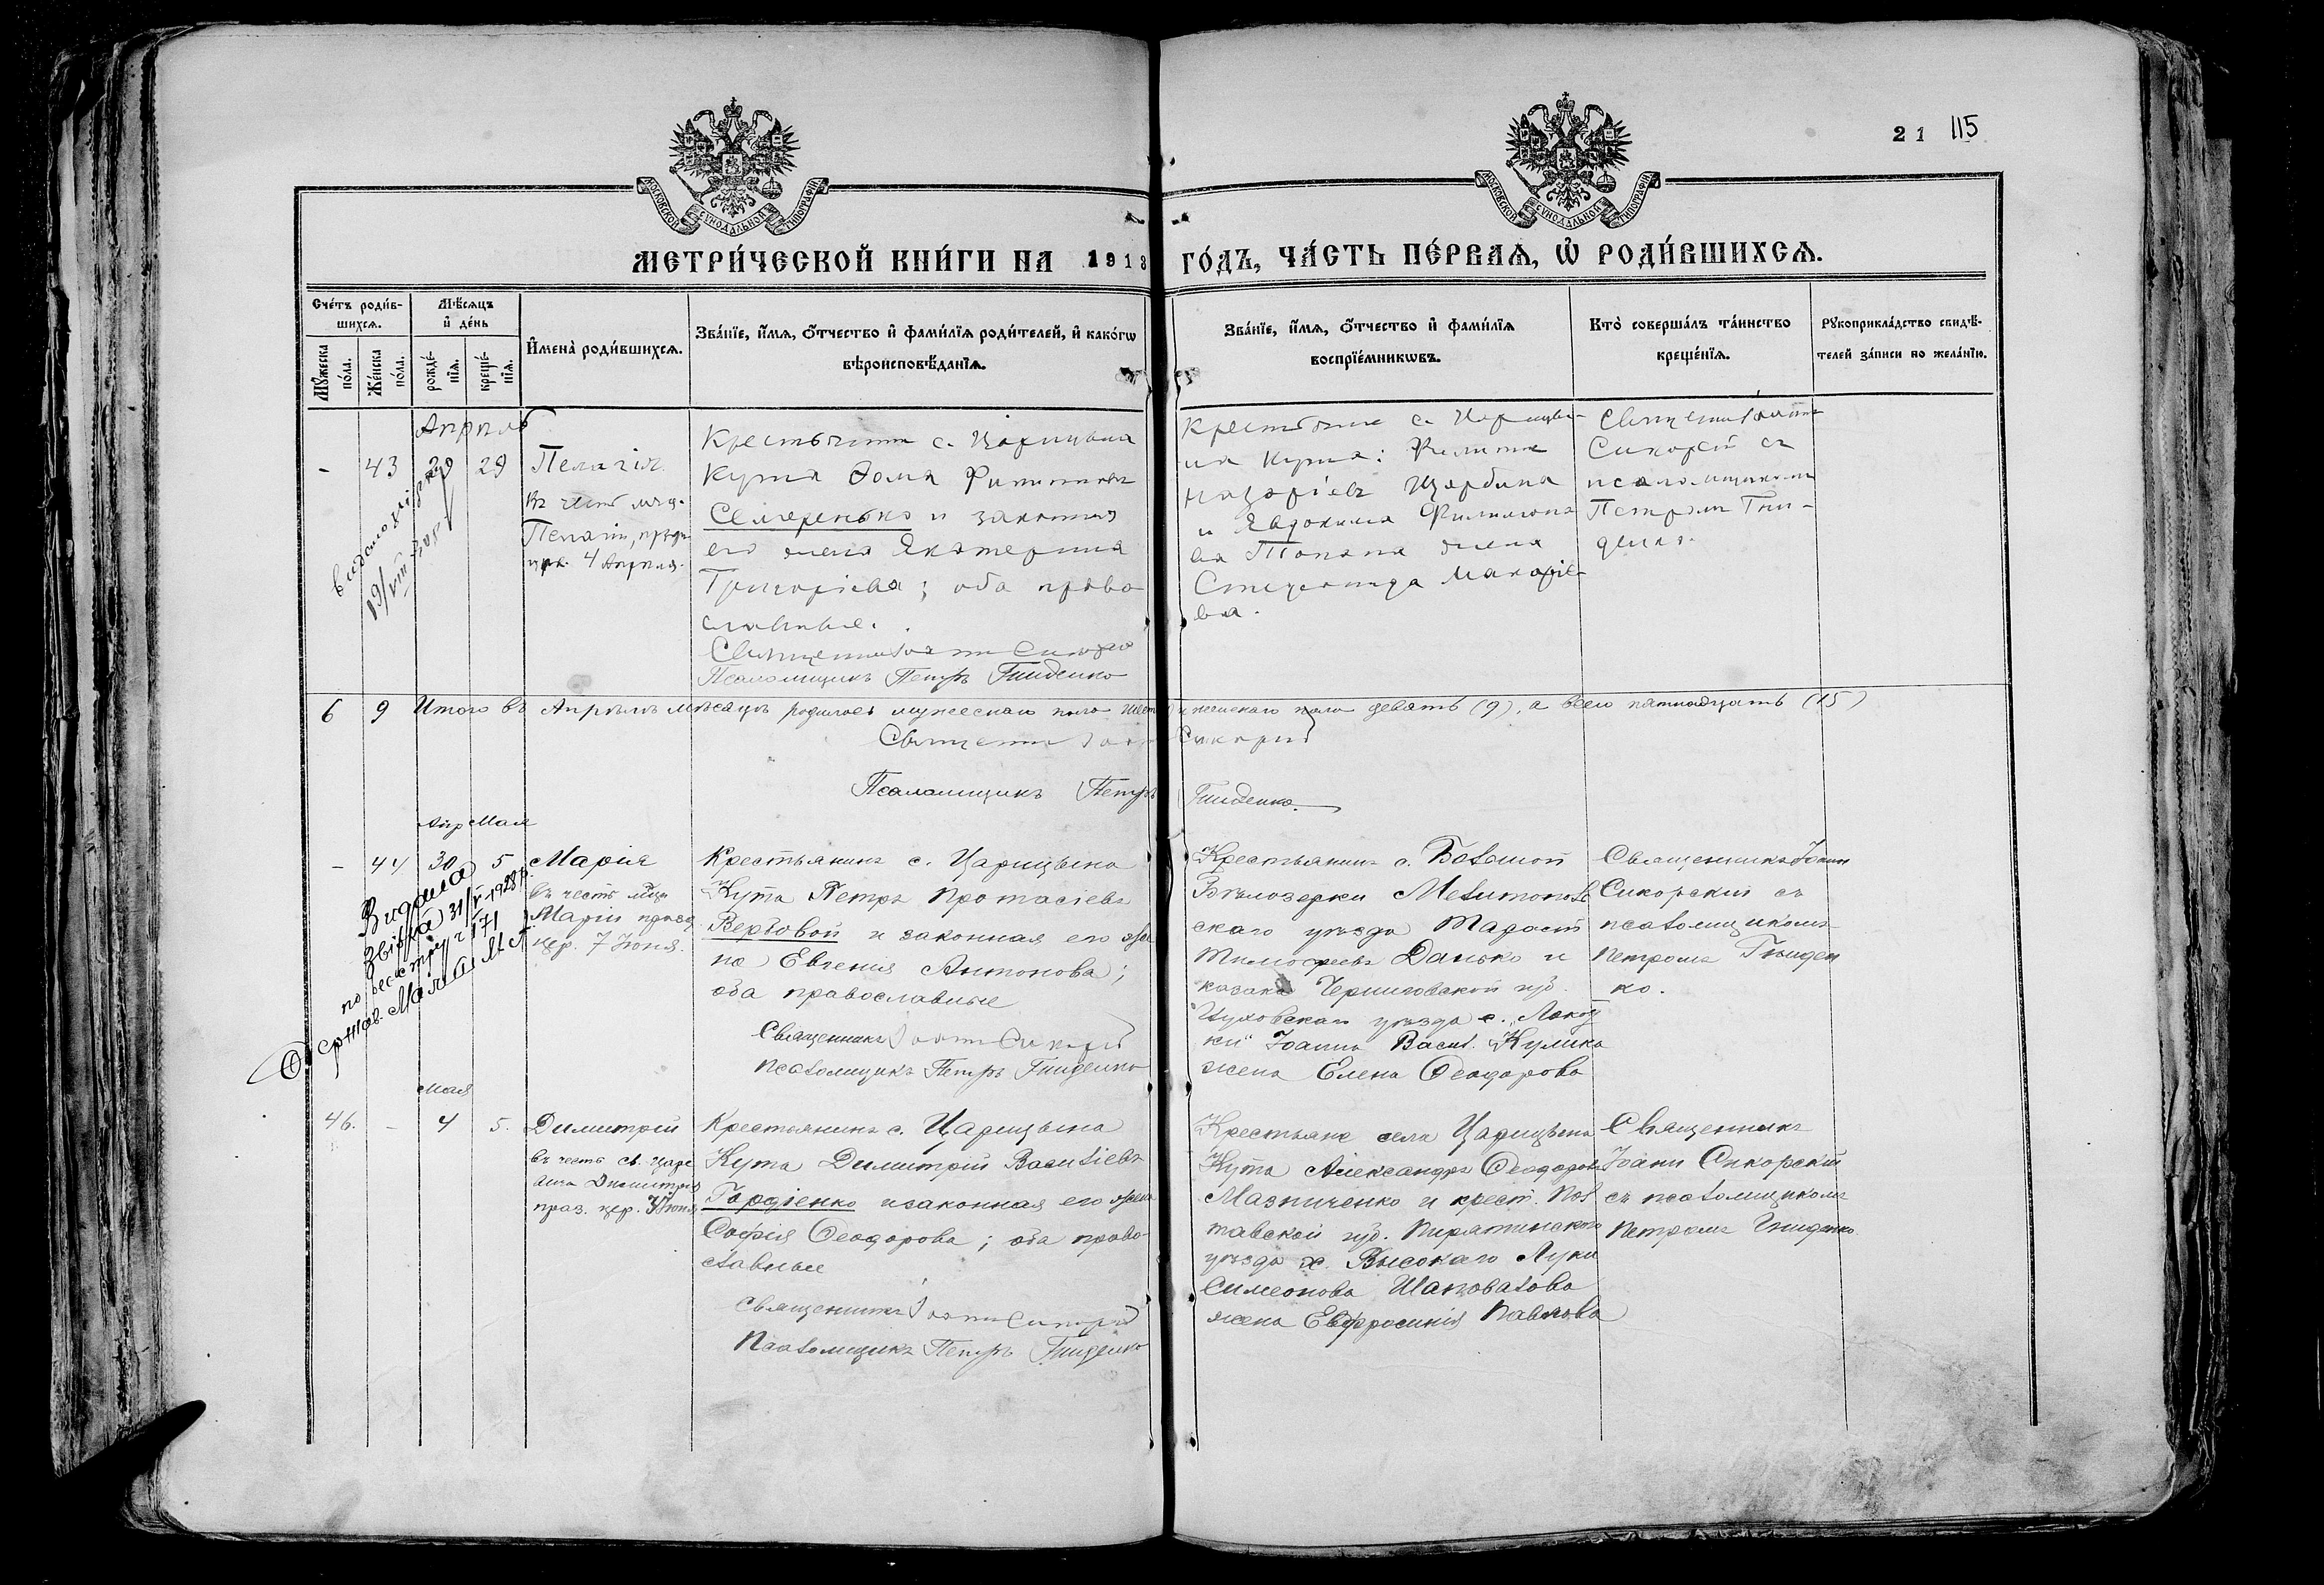 21 115
МОСКОВСКОЙ СѴНОДАЛЬНОЙ ТИПОГРАФІИ
МОСКОВСКОЙ СѴНОДАЛЬНОЙ ТИПОГРАФІИ
МЕТРИ́ЧЕСКОЙ КНИ́ГИ НА 1913 ГО́ДЪ, ЧА́СТЬ ПЕ́РВАѦ, Ѡ҆ РОДИ́ВШИХСѦ.
Сче́тъ роди́в-
шихсѧ.
Мꙋ́жеска по́ла.
Же́нска по́ла.
Мѣ́сѧцъ
и҆ де́нь
рожде́-
нїѧ.
креще́-
нїѧ.
И҆мена̀ роди́вшихсѧ.
Зва́нїе, и҆́мѧ, ѻ҆́тчество и҆ фами́лїѧ роди́телей, и҆ како́гѡ
вѣроисповѣ́данїѧ.
Зва́нїе, и҆́мѧ, ѻ҆́тчество и҆ фами́лїѧ
воспрїе́мникѡвъ.
Кто̀ соверша́лъ та́инство
креще́нїѧ.
Рꙋкоприкла́дство свидѣ́-
телей за́писи по жела́нїю.
Апрѣль
- 43 29 29
Пелагія
въ честь муч.
Пелагіи, празд.
цер. 4 Апрѣля.
Крестьянинъ с. Царицына
Кута Фома Филипповъ
Семеренько и законная
его жена Екатерина
Григоріева; оба право-
славные.
Священникъ Іоаннъ Сикорскій
Псаломщикъ Петръ Гниденко
Крестьяне с. Царицы-
на Кута: Филиппъ
Назаріевъ Щербина
и Евдокима Филимоно-
ва жена
Макаріе-
ва.
Священникъ Іоаннъ
Сикорскій съ
псаломщикомъ
Петромъ Гни-
денко.
6 9 Итого въ Апрѣлѣ мѣсяцѣ родилось мужескаго пола шесть и женскаго пола девять (9), а всего пятнадцать (15)
Священникъ Іоаннъ Сикорскій
Псаломщикъ Петръ Гниденко.
Апр Мая
- 44 30 5
Марія
въ честь мчц
Маріи празд
цер. 7 Іюня.
Видана
31/V-1928 р.
по реестру 171
Крестьянинъ с. Царицына
Кута Петръ Протасіевъ
Вербовой и законная его же
на Евгенія Антонова;
оба православные
Священникъ Іоаннъ Сикорскій
Псаломщикъ Петръ Гниденко
Крестьянинъ с. Большой
Бѣлозерки Мелитополь
скаго уѣзда Тарасій
Тимофеевъ Данько и
казака Черниговской губ.
уѣзда с.
Іоанна Васил. Кулика
жена Елена Ѳеодорова
Священникъ Іоаннъ
Сикорскій съ
псаломщикомъ
Петромъ Гниден
ко.
Мая
46. - 4 5.
Димитрій
въ честь св. царе
вича Димитрія
праз. цер. 3 Іюня
Крестьянинъ с. Царицына
Кута Димитрій Василіевъ
Гордіенко и законная его жена
Софія Ѳеодорова; оба право-
славные
Священникъ Іоаннъ Сикорскій
Псаломщикъ Петръ Гниденко
Крестьяне села Царицына
Кута Александръ Ѳеодоровъ
Мазниченко и крест. Пол
тавской губ. Пирятинскаго
уѣзда х. Высокаго Луки
Симеонова Шаповалова
жена Евфросинія Павлова
Священникъ
Іоаннъ Сикорскій
съ псаломщикомъ
Петромъ Гниденко